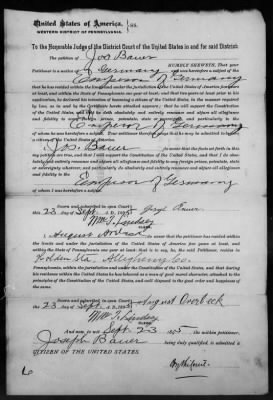 United States of America, } ss.
WESTERN DISTRICT OF PENNSYLVANIA.
To the Honorable Judge of the District Court of the United States in and for said District:
The petition of Jos Bauer HUMBLY SHEWETH, That your
Petitioner is a native of Germany and was heretofore a subject of the
Emperor of Germany
that he has resided within the limits and under the jurisdiction of the United States of America five years
at least, and within the State of Pennsylvania one year at least; and that two years at least prior to his
application, he declared his intention of becoming a citizen of the United States, in the manner required
by law, as to and by Certificate hereto attached appears; that he will support the Constitution
of the United States, and he doth absolutely and entirely renounce and abjure all allegiance and
fidelity to any foreign prince, potentate, state or sovereignty whatever, and particularly to the
Emperor of Germany
of whom he was heretofore a subject. Your petitioner therefore prays that he may be admitted to
become a citizen of the United States.
I, Jos. Bauer do swear that the facts set forth in this
my petition are true, and that I will support the Constitution of the United States, and that I do abso-
lutely and entirely renounce and abjure all allegiance and fidelity to any foreign prince, potentate, state
or sovereignty whatever, and particularly that I do absolutely and entirely renounce and abjure all allegiance
and fidelity to the
Emperor of Germany
of whom I was heretofore a subject.
Sworn and subscribed in open Court Joseph Bauer
this 23 day of Sept. A. D. 1895
Wm T. Lindsey
CLERK.
I, August
limits and under the jurisdiction of the United States of America five years at least, and
within the State of Pennsylvania one year at least, that is to say, he said Petitioner, resides in
Allegheny Co.
Pennsylvania, within the jurisdiction and under the Constitution of the United States, and that during
his residence within the United States he has behaved as a man of good moral character, attached to the
principles of the Constitution of the United States, and well disposed to the good order and happiness of
the same.
Sworn and subscribed in open Court August Overbeck
this 23 day of Sept. A. D. 1895
Wm T. Lindsey
CLERK.
And now, to wit: Sept. 23 1895 the within petitioner,
Joseph Bauer being duly qualified, is admitted a
CITIZEN OF THE UNITED STATES.
By the Court.